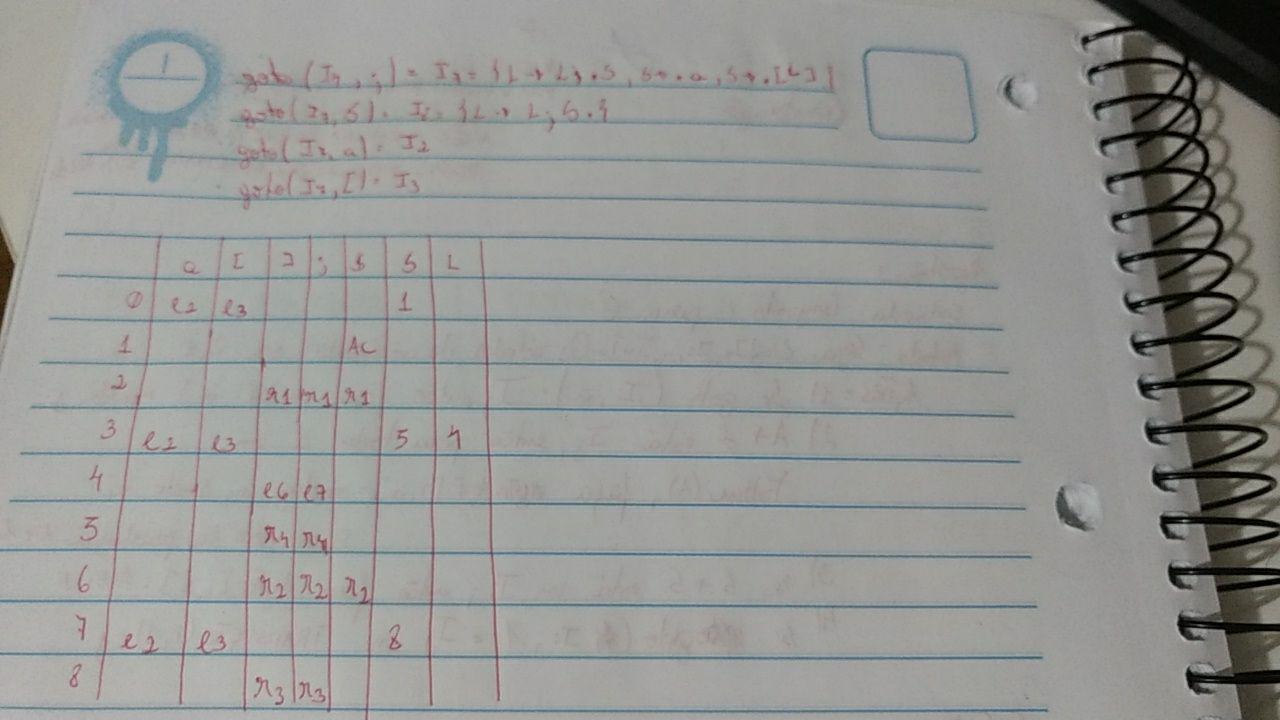 goto(I4, ;) = I7 = {L → L;.S, S→.a, S→.[L]}
goto(I7, S) = I8 = {L → L;S.}
goto(I7, a) = I2
goto(I7, [) = I3
a [ ] ; $ S L
0 e2 e3 1
1 AC
2 r1 r1 r1
3 e2 e3 5 4
4 e6 e7
5 r4 r4
6 r2 r2 r2
7 e2 e3 8
8 r3 r3